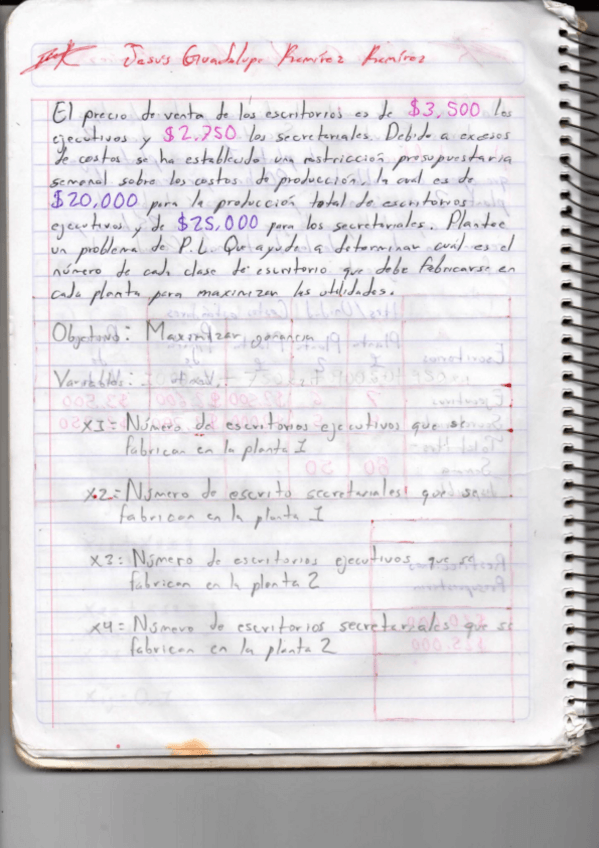 Jesus Guadalupe Ramírez Ramírez
El precio de venta de los escritorios es de $3,500 los
ejecutivos y $2,750 los secretariales. Debido a excesos
de costos se ha establecido una restricción presupuestaria
semanal sobre los costos de producción, la cual es de
$20,000 para la producción total de escritorios
ejecutivos y de $25,000 para los secretariales. Plantee
un problema de P.L. Que ayude a determinar cuál es el
número de cada clase de escritorio que debe fabricarse en
cada planta para maximizar las utilidades.
Objetivo: Maximizar ganancia
Variables:
x1= Número de escritorios ejecutivos que se
fabrican en la planta 1
x2= Número de escrito secretariales que se
fabrican en la planta 1
x3= Número de escritorios ejecutivos que se
fabrican en la planta 2
x4= Número de escritorios secretariales que se
fabrican en la planta 2